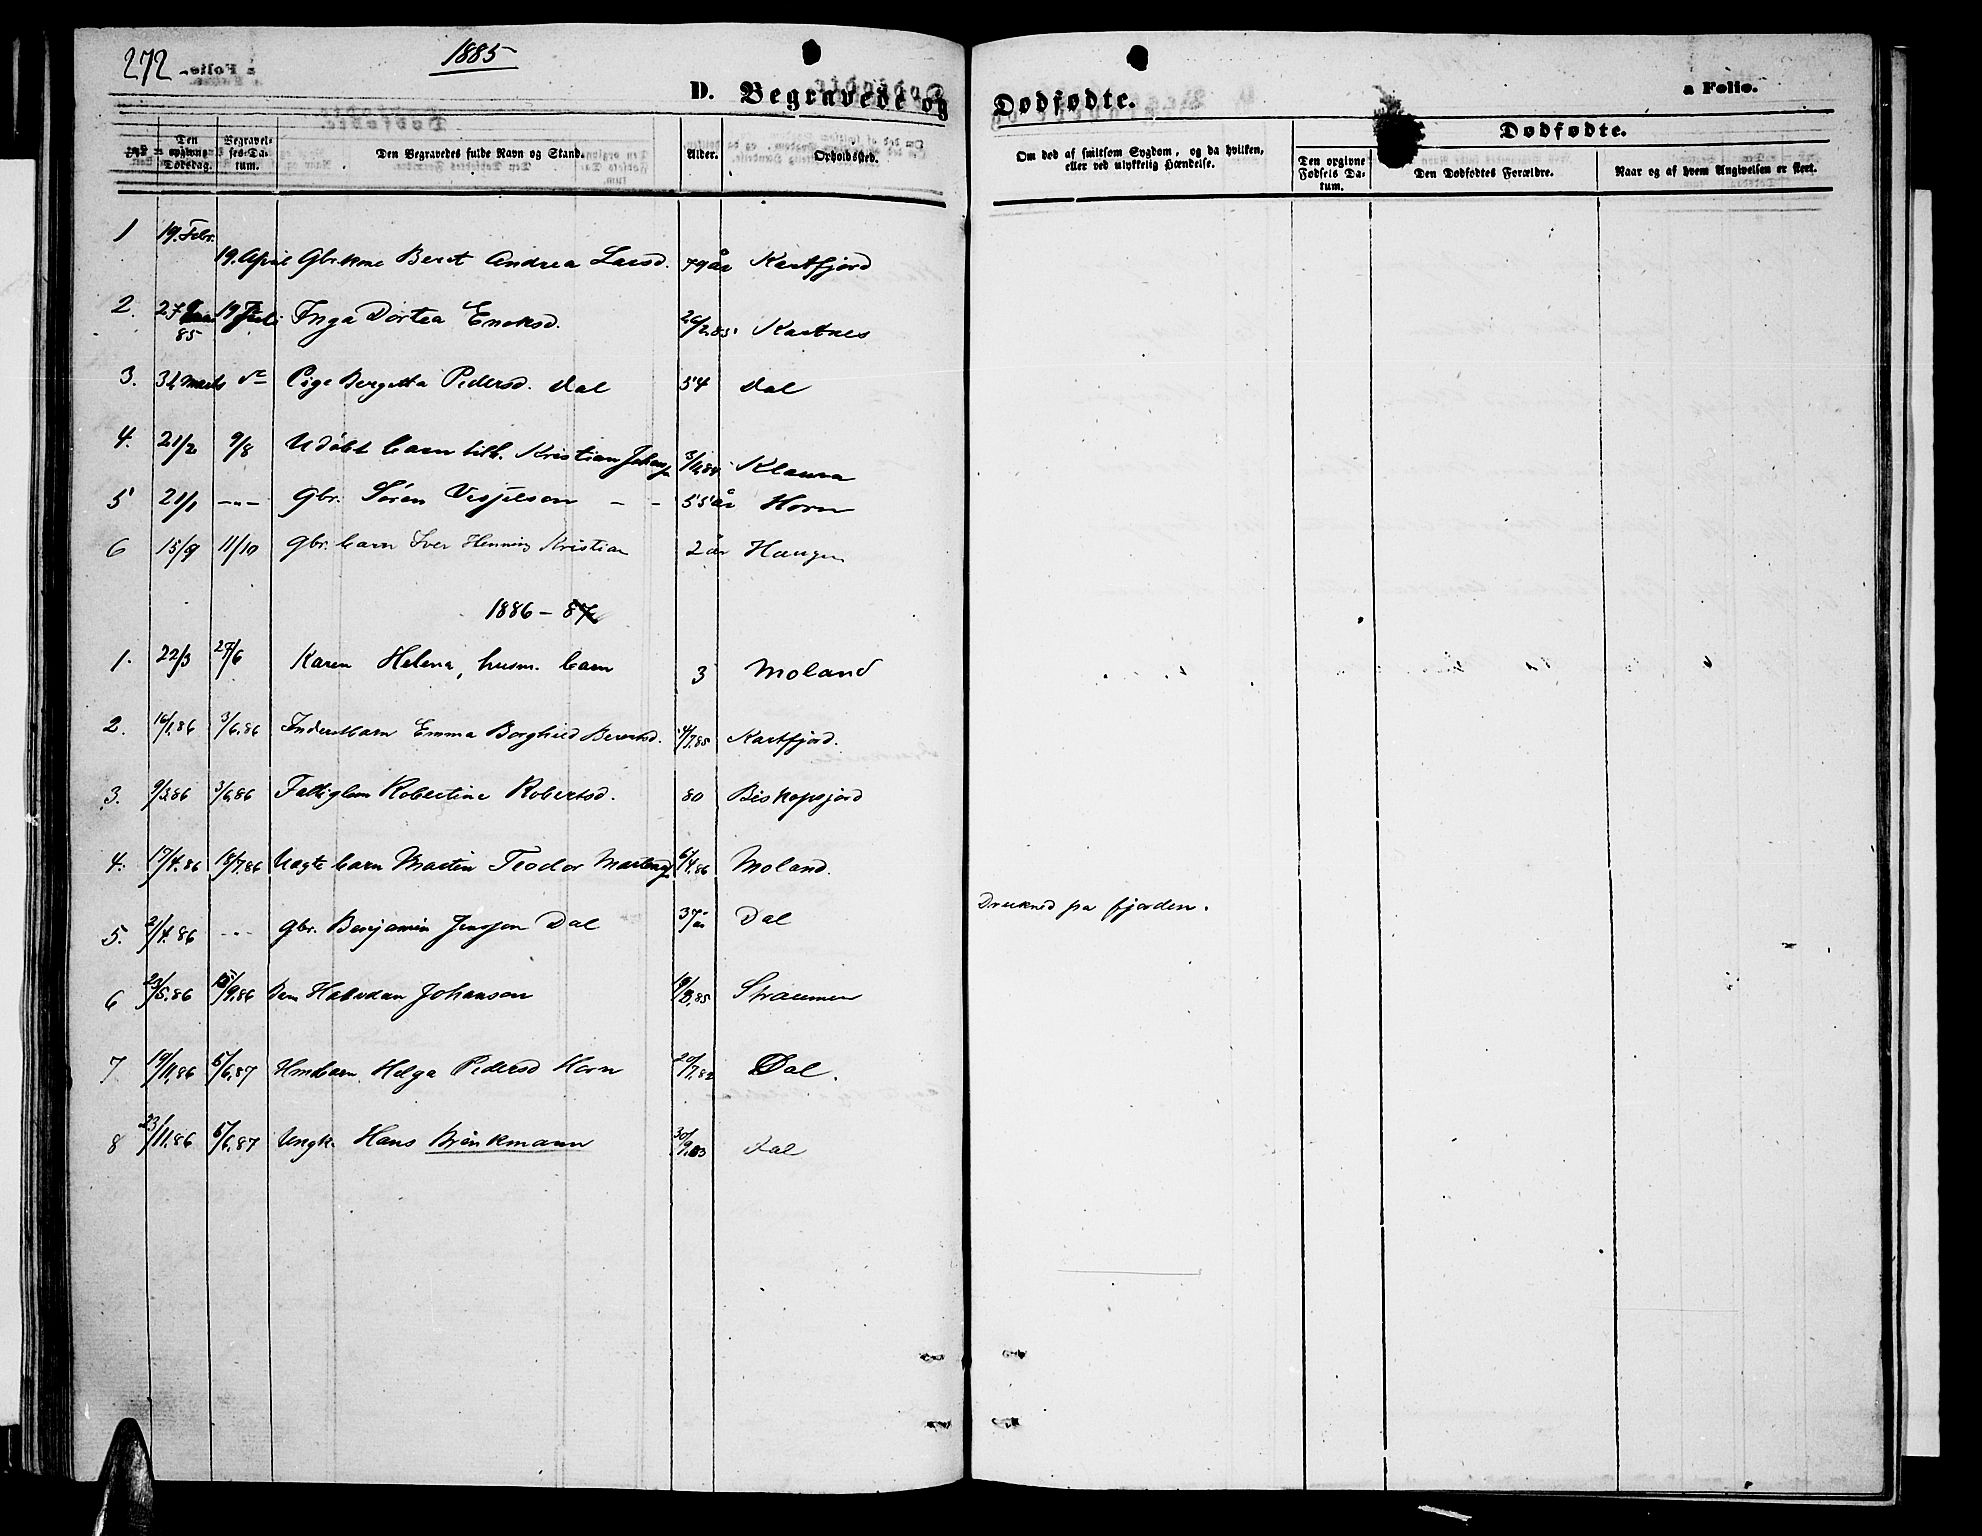 272
1885
D. Begravede og Dødfødte.
a Folio.
Den opgivne Dødsdag.
Begravelses-Datum.
Den Begravedes fulde Navn og Stand.
Alder.
Opholdssted.
Om død af smitsom Sygdom, og da hvilken, eller ved ulykkelig Hændelse.
Dødfødte.
Den opgivne Fødsels Datum.
Den Dødfødtes Forældre.
Naar og af hvem Angivelsen er skeet.
1 19. Febr. 19. April Gbr.kone Beret Andrea Larsd. 79 år Kastfjord
2. 27 85 19 Juli Inga Dortea Enoksd. 26/2.85. Kastnes
3. 31 Marts Pige Bergitta Pedersd. Dal 54 Dal
4. 21/2 9/8 Udöbt barn till. Kristian
5 21/1 -"- Gbr. Sören - - 55 år Horn
6 15/9 11/10 Gbr. barn Iver Henning Kristian 2 år Haugen
1886 - 87
1. 22/3 27/6 Karen Helena, husm. barn 3 Moland
2. 16/1.86 3/6.86 Emma Borghild 4/7.85 Kastfjord.
3. 9/3.86 3/6.86 Robertine Robertsd. 80 Biskopsjord
4. 17/4.86 18/7.86 Uægte barn Martin Teodor 6/4.86 Moland.
5. 2/4.86 - - - gbr. Benjamin Jensson Dal 37 år Dal Drukned på fjorden.
6 /5.86 /9.86 Halvdan Johanson Straumen
7 19/11.86 5/6.87 Helga Pedersd Horn 20/7.82 Dal.
8 23/11.86 5/6.87 Ungk. Hans Brinkmann 30/9.63 Dal